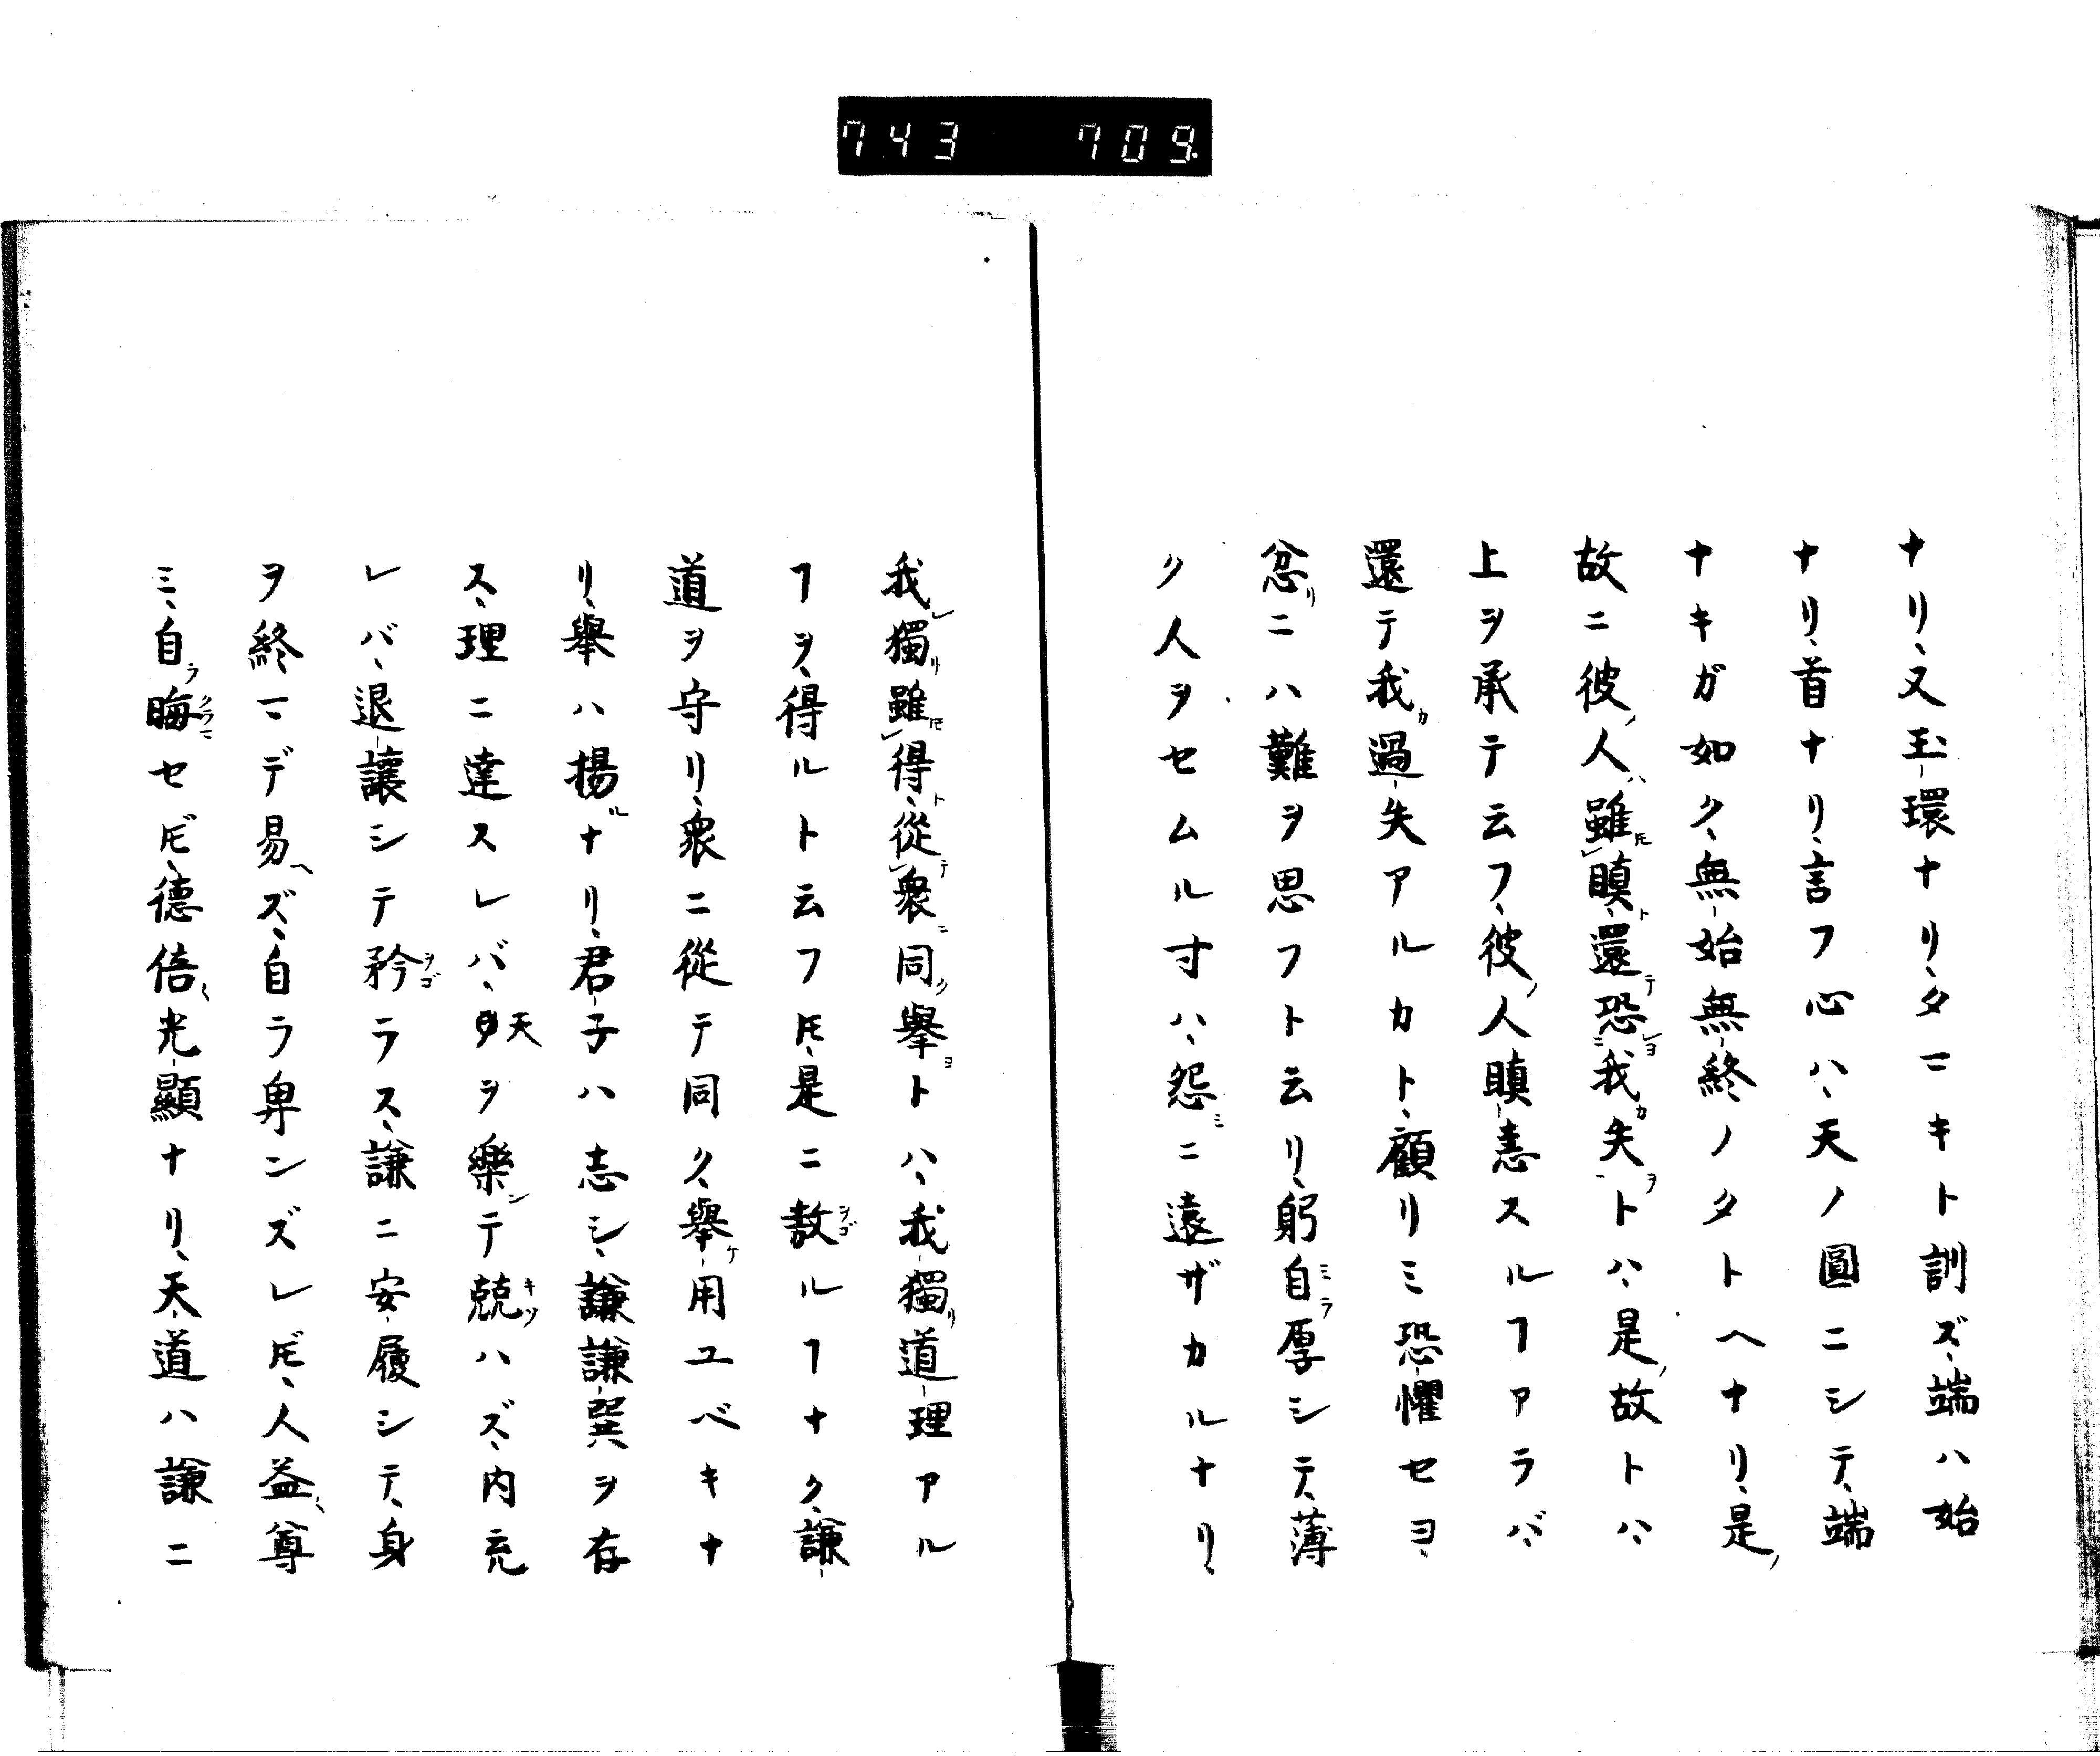 743 709.
ナリ、又玉環ナリ、タマキト訓ズ、端ハ始
ナリ、首ナリ、言フ心ハ、天ノ圓ニシテ、端
ナキガ如ク、無始無終ノタトヘナリ、是ノ
故ニ彼ノ人ハ雖𪜈瞋ト、還テ恐レヨ我カ失ヲトハ、是ノ故トハ、
上ヲ承テ云フ、彼ノ人瞋恚スルヿアラバ、
還テ我カ過失アルカト、顧リミ恐懼セヨ、
忿リニハ難ヲ思フト云リ、躬自ミラ厚シテ、薄
ク人ヲセムル寸ハ、怨ミニ遠ザカルナリ、
我レ獨リ雖𪜈得ト、從テ衆ニ同ク擧ヨトハ、我獨リ道理アル
ヿヲ、得ルト云フ𪜈、是ニ敖ヲゴルヿナク、謙
道ヲ守リ、衆ニ從テ同ク、擧ケ用ユベキナ
リ、擧ハ揚ルナリ、君子ハ志シ、謙謙巽ヲ存
ス、理ニ達スレバ、天ヲ樂シテ競キソハズ、内充
レバ、退讓シテ矜ヲゴラス、謙ニ安履シテ、身
ヲ終マデ易ヘズ、自ラ卑ンズレ𪜈、人益〱尊
ミ、自ラ晦クラマセ𪜈、德倍〱光顯ナリ、天道ハ謙ニ